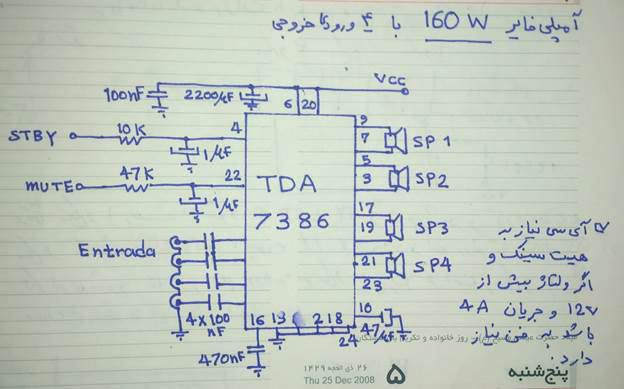 آمپلی فایر 160 W با 4 ورودی و 4 خروجی
VCC
100nF
2200µF
6 20
STBY
10K
4
1µF
MUTE
47K
22
1µF
TDA
7386
9
7
SP 1
5
3
SP2
17
19
SP3
21
23
SP4
Entrada
4x100
nF
16 13
2 18
24
10
47µF
470nF
آی سی نیاز به
هیت سینک و
اگر ولتاژ بیش از
12v و جریان 4A
باشد به فن نیاز
دارد
۲۶ ذی الحجه ۱۴۲۹
Thu 25 Dec 2008
۵
پنج‌شنبه